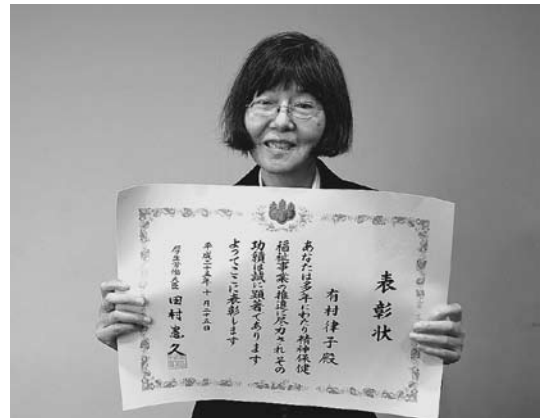 表彰状
有村律子殿
あなたは多年にわたり精神保健
福祉事業の推進に尽力されその
功績は誠に顕著であります
よってここに表彰します
平成二十五年十月二十五日
厚生労働大臣 田村憲久